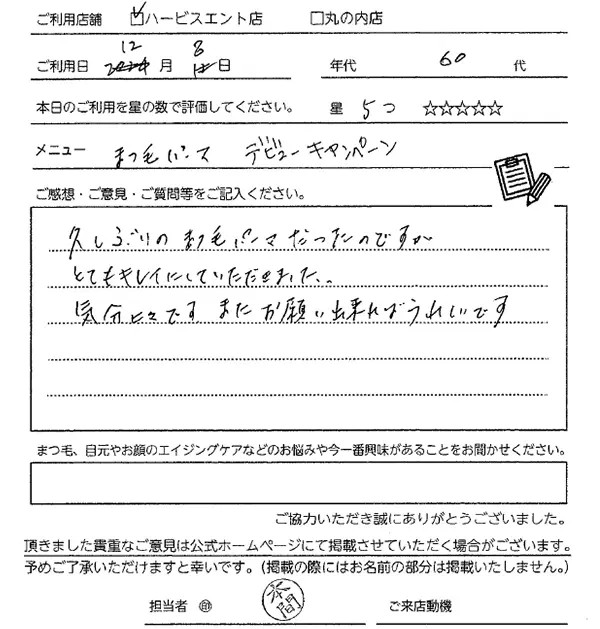 ご利用店舗 ☑ハービスエント店 □丸の内店
ご利用日 12月 8日 年代 60 代
本日のご利用を星の数で評価してください。 星 5つ ☆☆☆☆☆
メニュー まつ毛パーマ デビューキャンペーン
ご感想・ご意見・ご質問等をご記入ください。
久しぶりのまつ毛パーマだったのですが
とてもキレイにしていただきました。
気分上々です またお願い出来ればうれしいです
まつ毛、目元やお顔のエイジングケアなどのお悩みや今一番興味があることをお聞かせください。
ご協力いただき誠にありがとうございました。
頂きました貴重なご意見は公式ホームページにて掲載させていただく場合がございます。
予めご了承いただけますと幸いです。(掲載の際にはお名前の部分は掲載いたしません。)
担当者 ㊞ 本間 ご来店動機